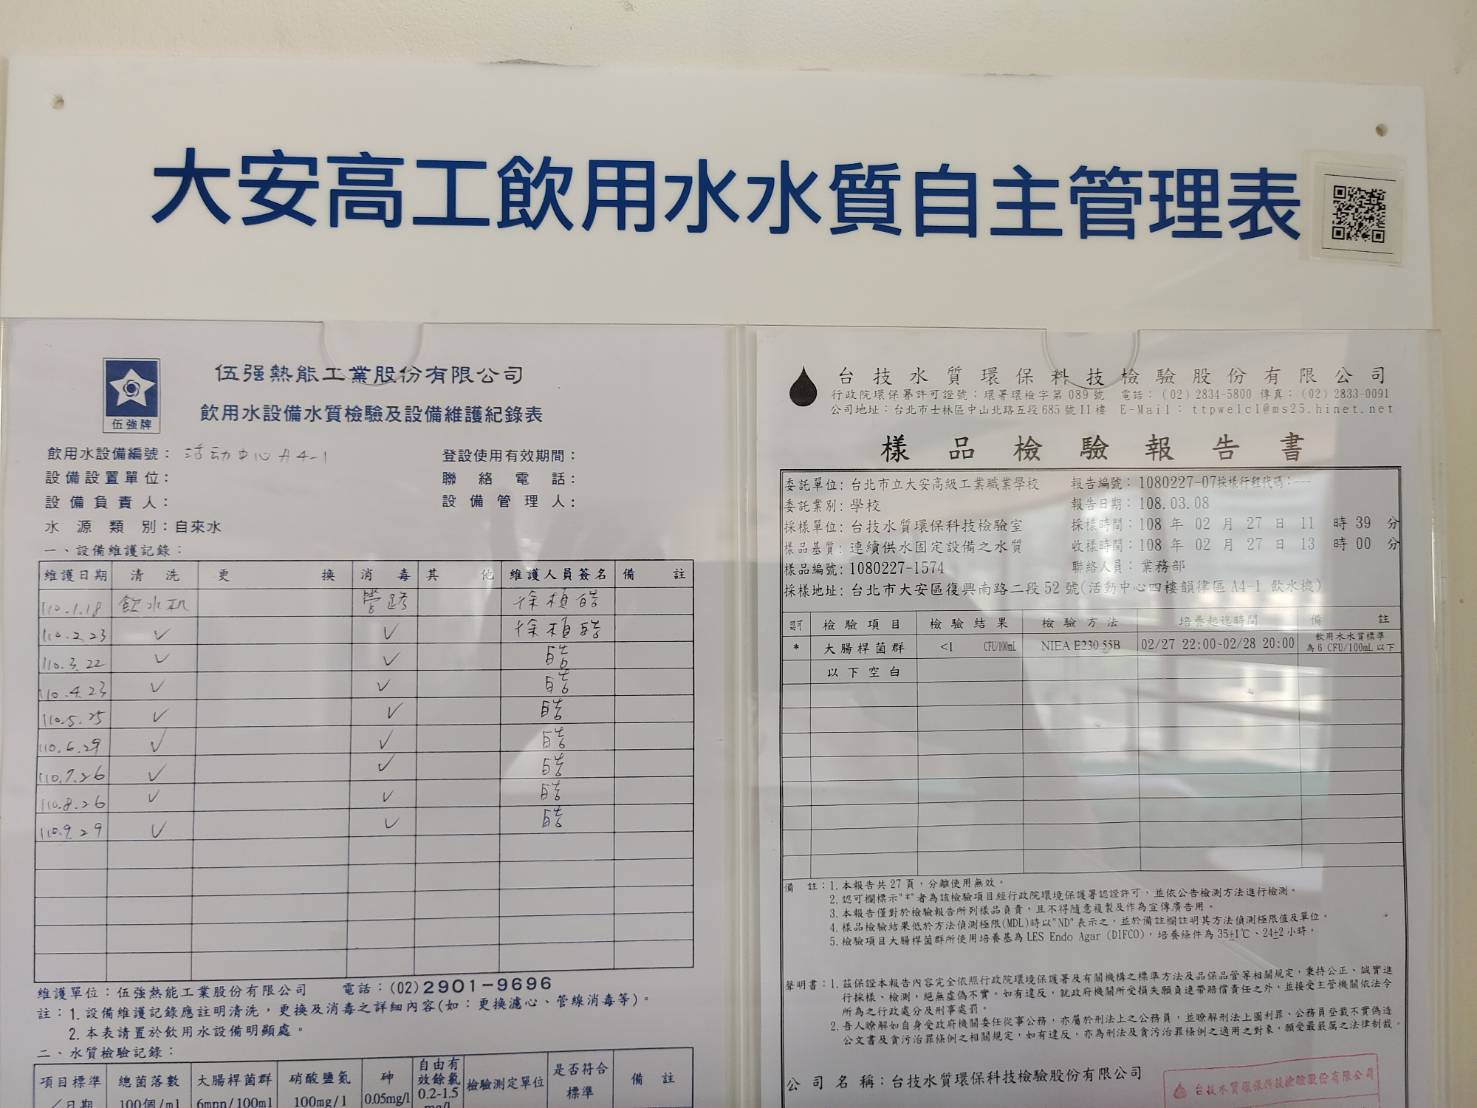 大安高工飲用水水質自主管理表
伍強牌
伍强熱能工業股份有限公司
飲用水設備水質檢驗及設備維護紀錄表
飲用水設備編號：活动中心A4-1
登設使用有效期間：
設備設置單位：
聯絡電話：
設備負責人：
設備管理人：
水源類別：自來水
一、設備維護記錄：
維護日期 清洗 更換 消毒 其他 維護人員簽名 備註
110.1.18 飲水机 管路
110.2.23 ✓ ✓
110.3.22 ✓ ✓ 皓
110.4.23 ✓ ✓ 皓
110.5.25 ✓ ✓ 皓
110.6.29 ✓ ✓ 皓
110.7.26 ✓ ✓ 皓
110.8.26 ✓ ✓ 皓
110.9.29 ✓ ✓ 皓
維護單位：伍強熱能工業股份有限公司 電話：(02)2901-9696
註：1.設備維護記錄應註明清洗，更換及消毒之詳細內容(如：更換濾心、管線消毒等)。
2.本表請置於飲用水設備明顯處。
二、水質檢驗記錄：
項目標準／日期 總菌落數 100個/ml 大腸桿菌群 6mpn/100ml 硝酸鹽氮 100mg/l 砷 0.05mg/l 自由有效餘氯 0.2-1.5 mg/l 檢驗測定單位 是否符合標準 備註
台技水質環保科技檢驗股份有限公司
行政院環保署許可證號：環署環檢字第089號 電話：(02)2834-5800 傳真：(02)2833-0091
公司地址：台北市士林區中山北路五段685號11樓 E-Mail：ttpwelcl@ms25.hinet.net
樣品檢驗報告書
委託單位：台北市立大安高級工業職業學校
報告編號：1080227-07採樣行程代碼：---
委託業別：學校
報告日期：108.03.08
採樣單位：台技水質環保科技檢驗室
採樣時間：108年02月27日11時39分
樣品基質：連續供水固定設備之水質
收樣時間：108年02月27日13時00分
樣品編號：1080227-1574
聯絡人員：業務部
採樣地址：台北市大安區復興南路二段52號(活動中心四樓韻律區A4-1 飲水機)
認可 檢驗項目 檢驗結果 檢驗方法 培養起迄時間 備註
* 大腸桿菌群 <1 CFU/100mL NIEA E230.55B 02/27 22:00-02/28 20:00 飲用水水質標準為6 CFU/100mL以下
以下空白
備註：1.本報告共27頁，分離使用無效。
2.認可欄標示"*"者為該檢驗項目經行政院環境保護署認證許可，並依公告檢測方法進行檢測。
3.本報告僅對於檢驗報告所列樣品負責，且不得隨意複製及作為宣傳廣告用。
4.樣品檢驗結果低於方法偵測極限(MDL)時以"ND"表示之，並於備註欄註明其方法偵測極限值及單位。
5.檢驗項目大腸桿菌群所使用培養基為LES Endo Agar (DIFCO)，培養條件為35±1℃、24±2小時。
聲明書：1.茲保證本報告內容完全依照行政院環境保護署及有關機構之標準方法及品保品管等相關規定，秉持公正、誠實進
行採樣、檢測，絕無虛偽不實，如有違反，就政府機關所受損失願負連帶賠償責任之外，並接受主管機關依法令
所為之行政處分及刑事處罰。
2.吾人瞭解如自身受政府機關委任從事公務，亦屬於刑法上之公務員，並瞭解刑法上圖利罪、公務員登載不實偽造
公文書及貪污治罪條例之相關規定，如有違反，亦為刑法及貪污治罪條例之適用之對象，願受最嚴厲之法律制裁。
公司名稱：台技水質環保科技檢驗股份有限公司
台技水質環保科技檢驗股份有限公司